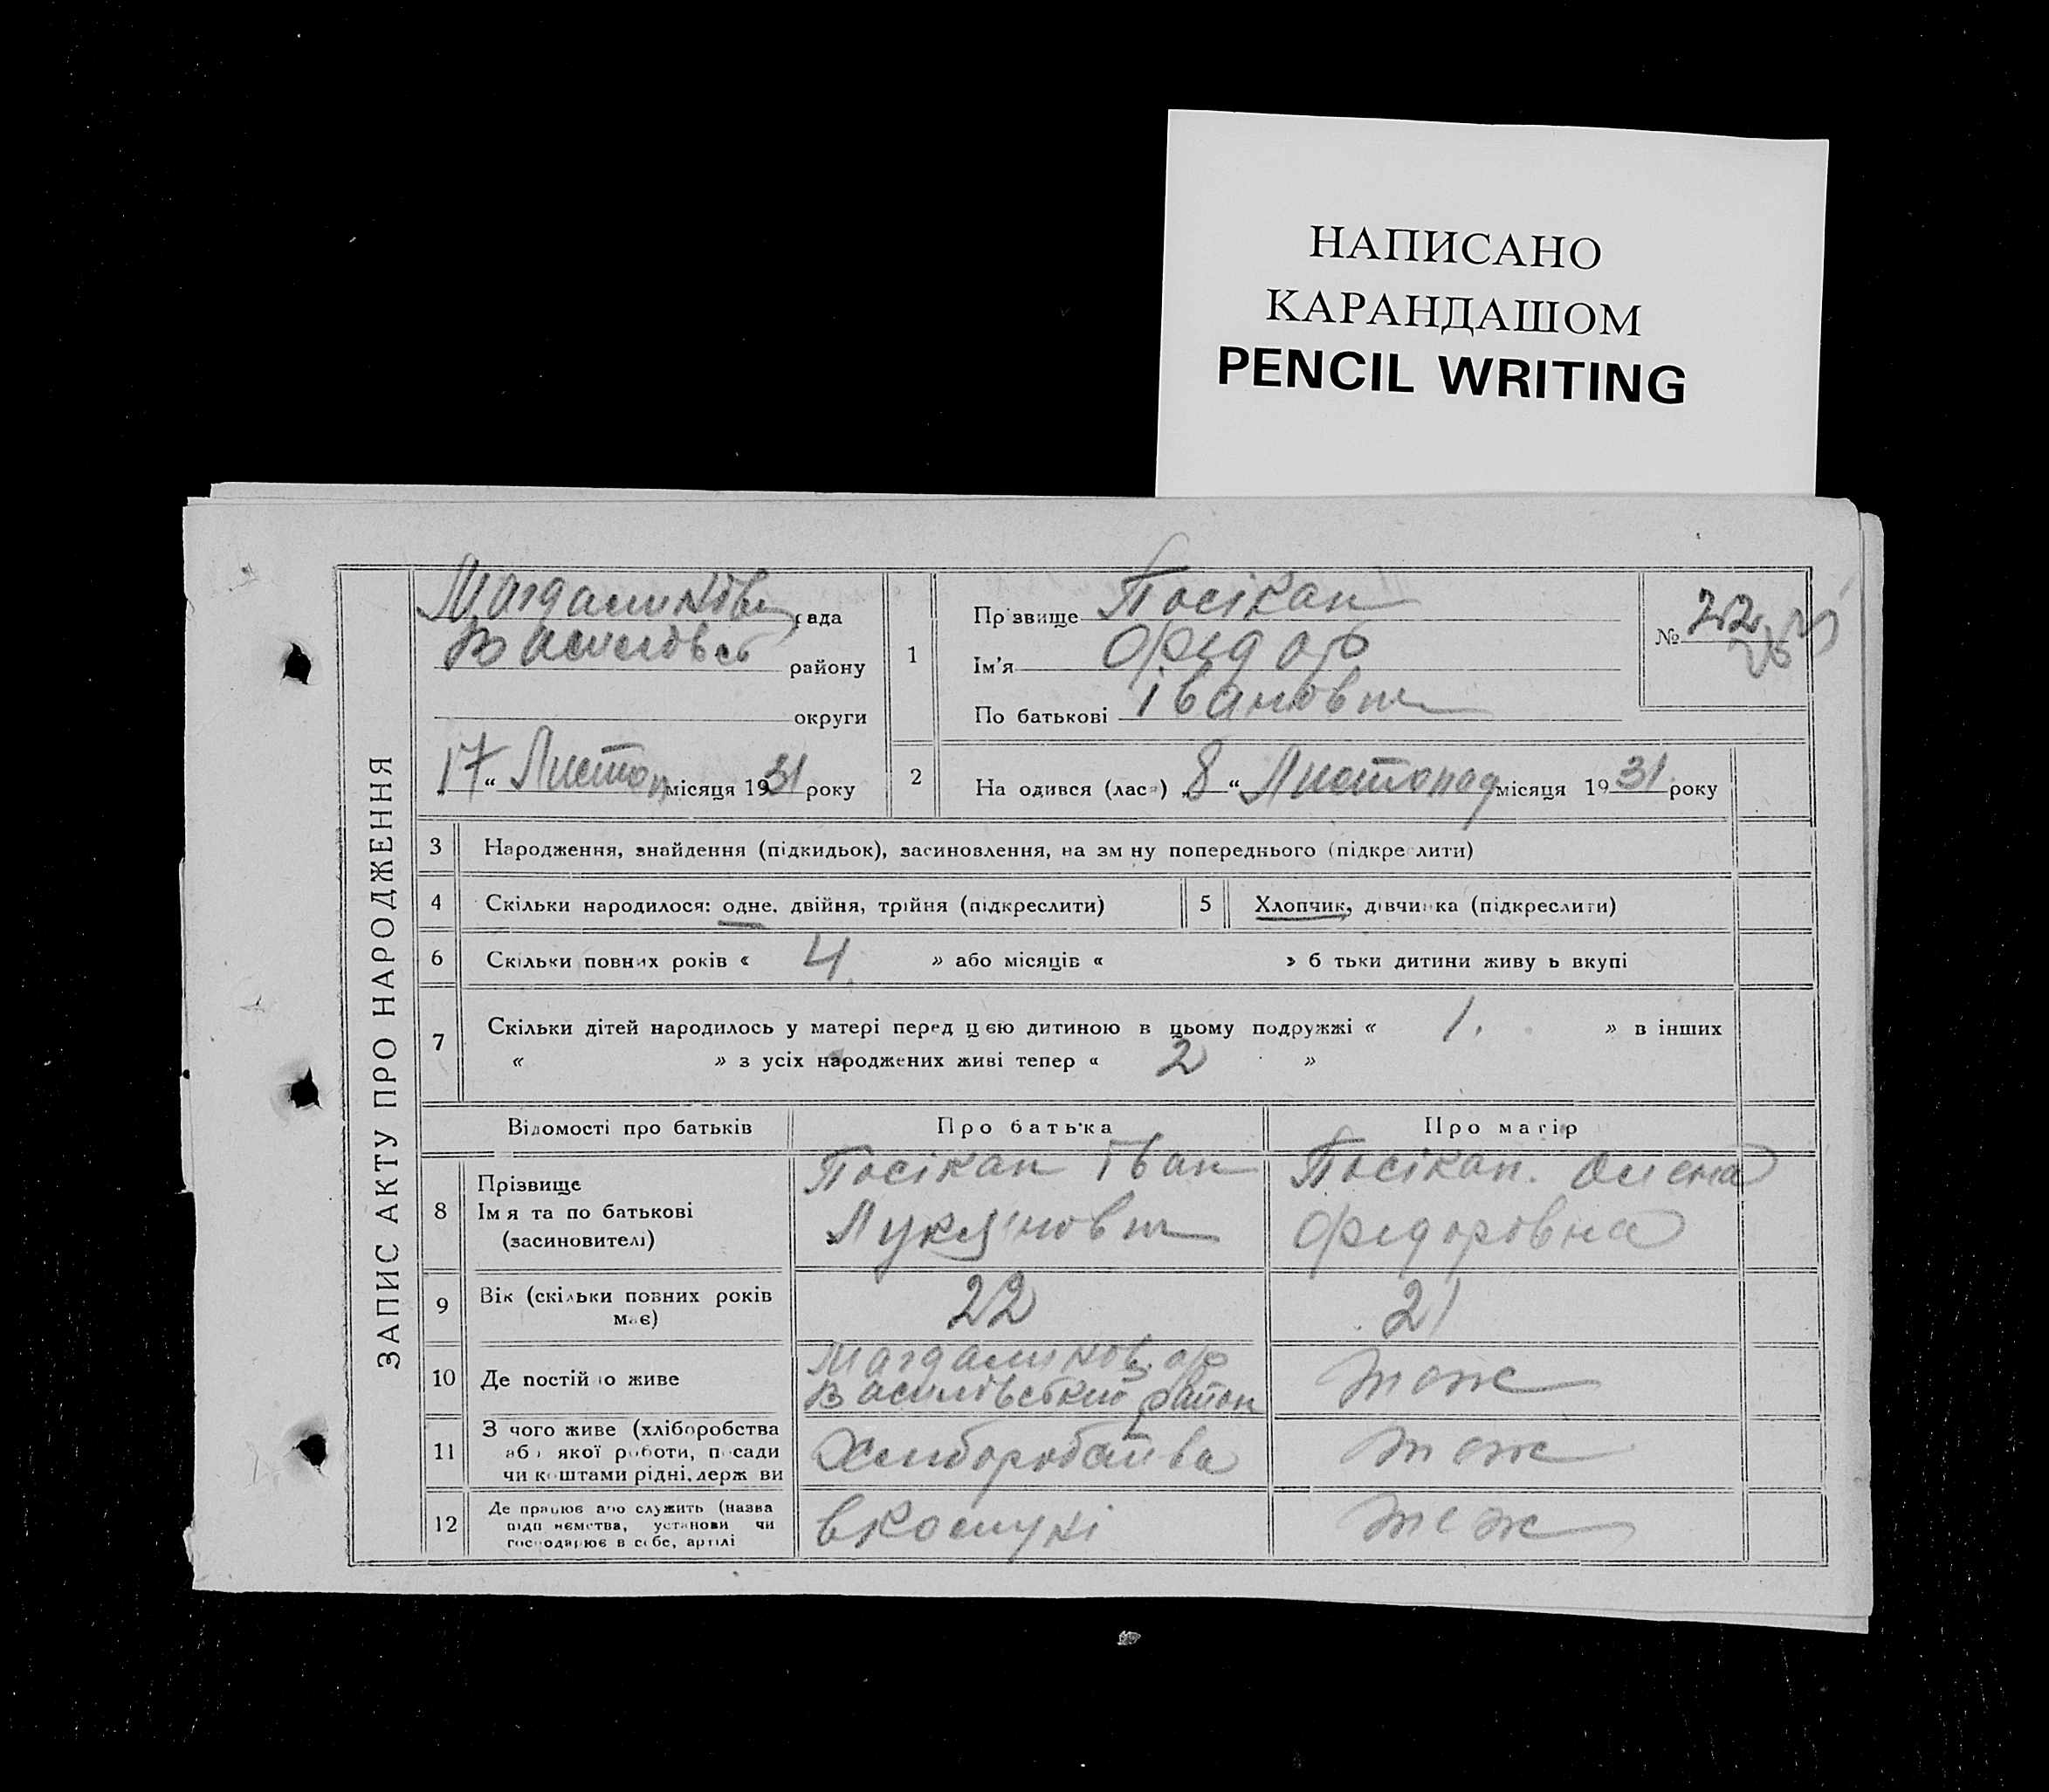 НАПИСАНО
КАРАНДАШОМ
PENCIL WRITING
ЗАПИС АКТУ ПРО НАРОДЖЕННЯ
рада
району
округи
„ 17 “ Листоп місяця 1931 року
1
Прізвище Посікан
Ім'я Федор
По батькові Івановпт
№ 22
2
На одився (лась) „ 8 “ Листопад місяця 1931 року
3 Народження, знайдення (підкидьок), засиновлення, на зм ну попереднього (підкре лити)
4 Скільки народилося: одне, двійня, трійня (підкреслити)
5 Хлопчик, дівчинка (підкреслити)
6 Скільки повних років « 4. » або місяців « » б тьки дитини живу ь вкупі
7 Скільки дітей народилось у матері перед цією дитиною в цьому подружжі « 1. » в інших
« » з усіх народжених живі тепер « 2 »
Відомості про батьків
Про батька
Про матір
8 Прізвище
Ім я та по батькові
(засиновителі)
Посікан Іван
Посікан. Олена
Федоровна
9 Вік (скільки повних років
має)
22
21
10 Де постійно живе
Василівський район
тож
11 З чого живе (хліборобства
або якої роботи, посади
чи коштами рідні, держ ви
тож
12 Де працює або служить (назва
підп иємства, установи чи
господарює в себе, артілі
вкомуні
тож